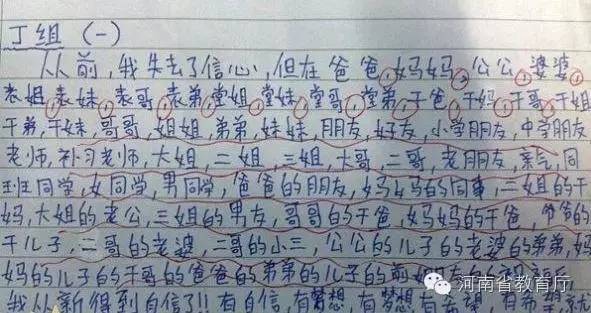 丁组 (一)
从前,我失去了信心,但在爸爸,妈妈,公公,婆婆,
表姐,表妹,表哥,表弟,堂姐,堂妹,堂哥,堂弟,干爸,干妈,干哥,干姐
干弟,干妹,哥哥,姐姐,弟弟,妹妹,朋友,好友,小学朋友,中学朋友,
老师,补习老师,大姐,二姐,三姐,大哥,二哥,老朋友,亲气,同
班同学,女同学,男同学,爸爸的朋友,妈妈的同事,二姐的干
妈,大姐的老公,三姐的男友,哥哥的干爸,妈妈的干爸,爷爷的
干儿子,二哥的老婆,二哥的小三,公公的儿子的老婆的弟弟,妈
妈的儿子的干哥的爸爸的弟弟的儿子的前
我从新得到自信了!!有自信,有梦想,有梦想,有希望,有希望,就
河南省教育厅